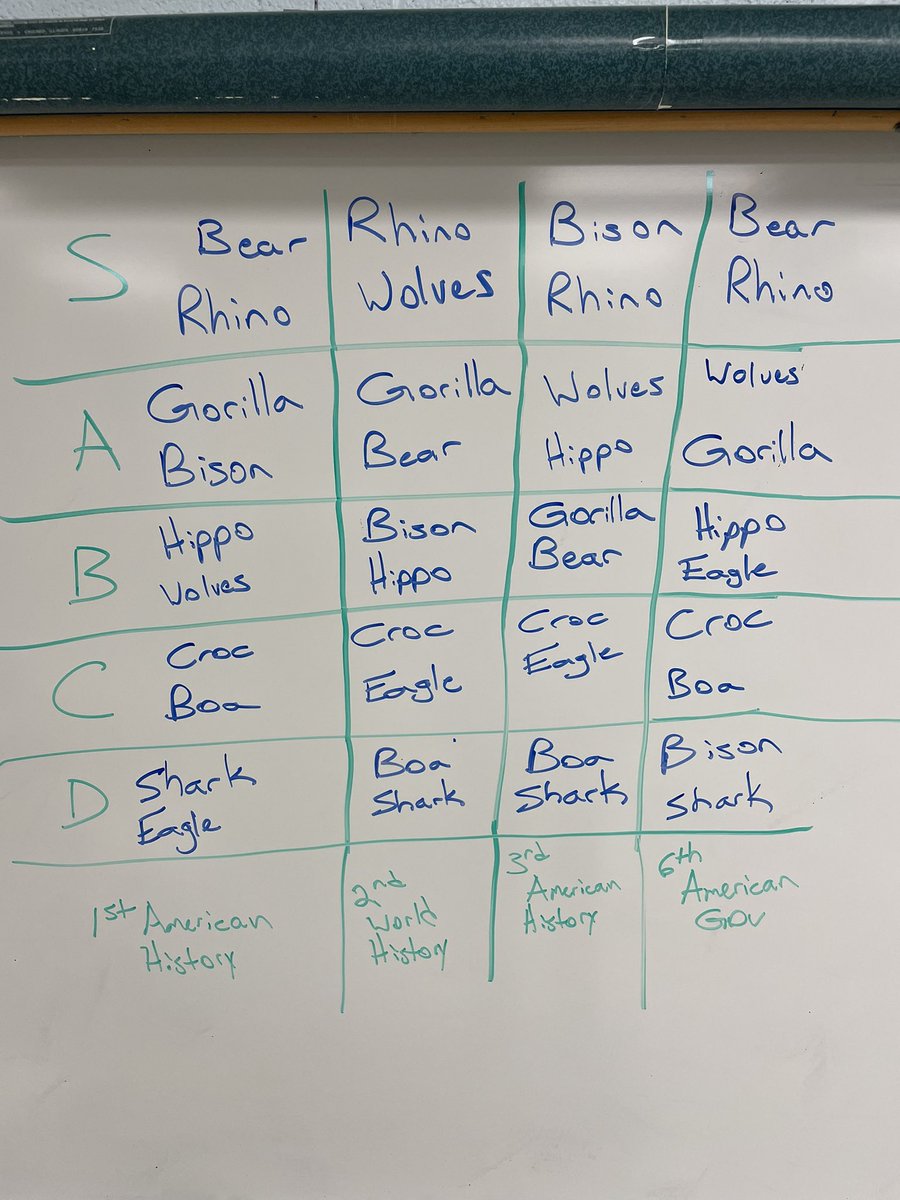 S
Bear
Rhino
Rhino
Wolves
Bison
Rhino
Bear
Rhino
A
Gorilla
Bison
Gorilla
Bear
Wolves
Hippo
Wolves
Gorilla
B
Hippo
Wolves
Bison
Hippo
Gorilla
Bear
Hippo
Eagle
C
Croc
Boa
Croc
Eagle
Croc
Eagle
Croc
Boa
D
Shark
Eagle
Boa
Shark
Boa
Shark
Bison
Shark
1st American
History
2nd
World
History
3rd
American
History
6th
American
Gov